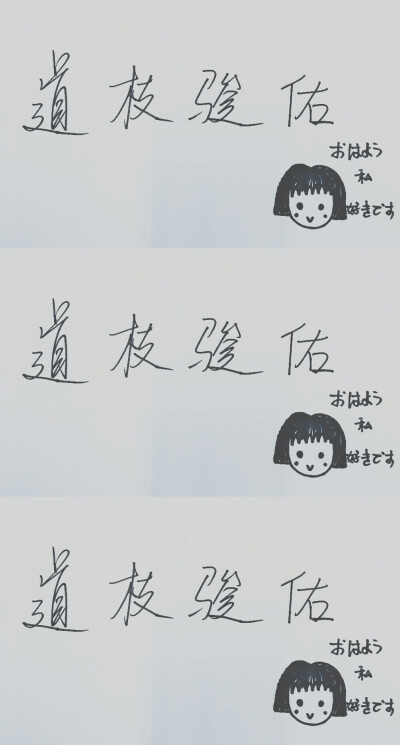 道枝骏佑
おはよう
私
好きです
道枝骏佑
おはよう
私
好きです
道枝骏佑
おはよう
私
好きです